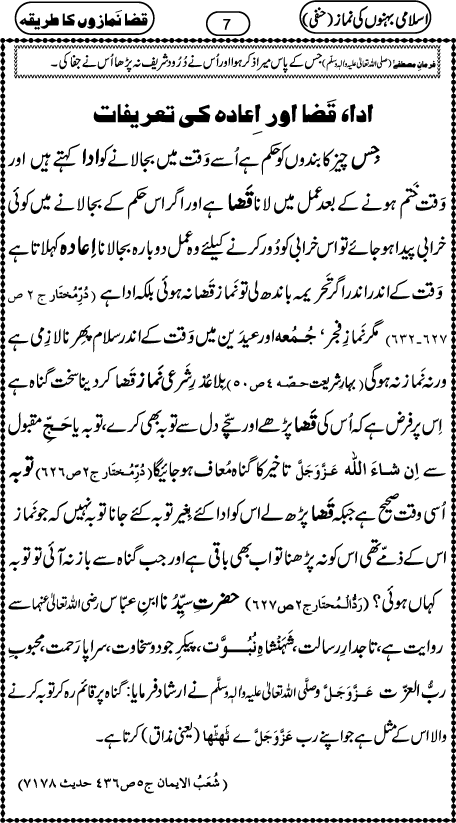 اسلامی بہنوں کی نماز (حنفی)
7
قضا نمازوں کا طریقہ
فرمانِ مصطفےٰ (صلی اللہ تعالیٰ علیہ والہٖ وسلّم) جس کے پاس میرا ذکر ہوا اور اُس نے دُرُود شریف نہ پڑھا اُس نے جفا کی۔
ادا، قَضا اور اِعادہ کی تعریفات
جس چیز کا بندوں کو حکم ہے اُسے وَقت میں بجا لانے کو ادا کہتے ہیں اور
وَقت ختم ہونے کے بعد عمل میں لانا قَضا ہے اور اگر اس حکم کے بجا لانے میں کوئی
خرابی پیدا ہو جائے تو اس خرابی کو دُور کرنے کیلئے وہ عمل دوبارہ بجا لانا اِعادہ کہلاتا ہے
وقت کے اندر اندر اگر تَحْریمہ باندھ لی تو نَماز قَضا نہ ہوئی بلکہ ادا ہے (دُرِّمُختار ج ۲ ص
۶۲۷۔۶۳۲) مگر نَمازِ فجر، جُمُعہ اور عیدَین میں وَقت کے اندر سلام پھرنا لازِمی ہے
ورنہ نَماز نہ ہوگی (بہارِ شریعت حصّہ ۴ ص ۵۰) بلا عُذرِ شَرعی نَماز قَضا کر دینا سخت گناہ ہے
اِس پر فرض ہے کہ اُس کی قَضا پڑھے اور سچّے دل سے توبہ بھی کرے، توبہ یا حَجِّ مقبول
سے اِن شاءَ اللہ عَزَّوَجَلَّ تاخیر کا گناہ مُعاف ہو جائیگا (دُرِّمُختار ج۲ ص۶۲۶) توبہ
اُسی وقت صحیح ہے جبکہ قَضا پڑھ لے اس کو ادا کئے بِغیر توبہ کئے جانا توبہ نہیں کہ جو نَماز
اس کے ذمّے تھی اس کو نہ پڑھنا تو اب بھی باقی ہے اور جب گناہ سے باز نہ آئی تو توبہ
کہاں ہوئی؟ (رَدُّالْمُحتار ج۲ ص۶۲۷) حضرتِ سیِّدُنا ابنِ عبّاس رضی اللہ تعالیٰ عنہما سے
روایت ہے، تاجدارِ رسالت، شَہَنشاہِ نُبُوَّت، پیکرِ جود و سخاوت، سراپا رَحمت، محبوبِ
ربُّ العزّت عَزَّوَجَلَّ وصلَّی اللہ تعالیٰ علیہ والہٖ وسلَّم نے ارشاد فرمایا: گناہ پر قائم رہ کر توبہ کرنے
والا اس کے مثل ہے جو اپنے رب عَزَّوَجَلَّ سے ٹَھٹّھا (یعنی مذاق) کرتا ہے۔
(شُعَبُ الایمان ج۵ ص ۴۳۶ حدیث ۷۱۷۸)